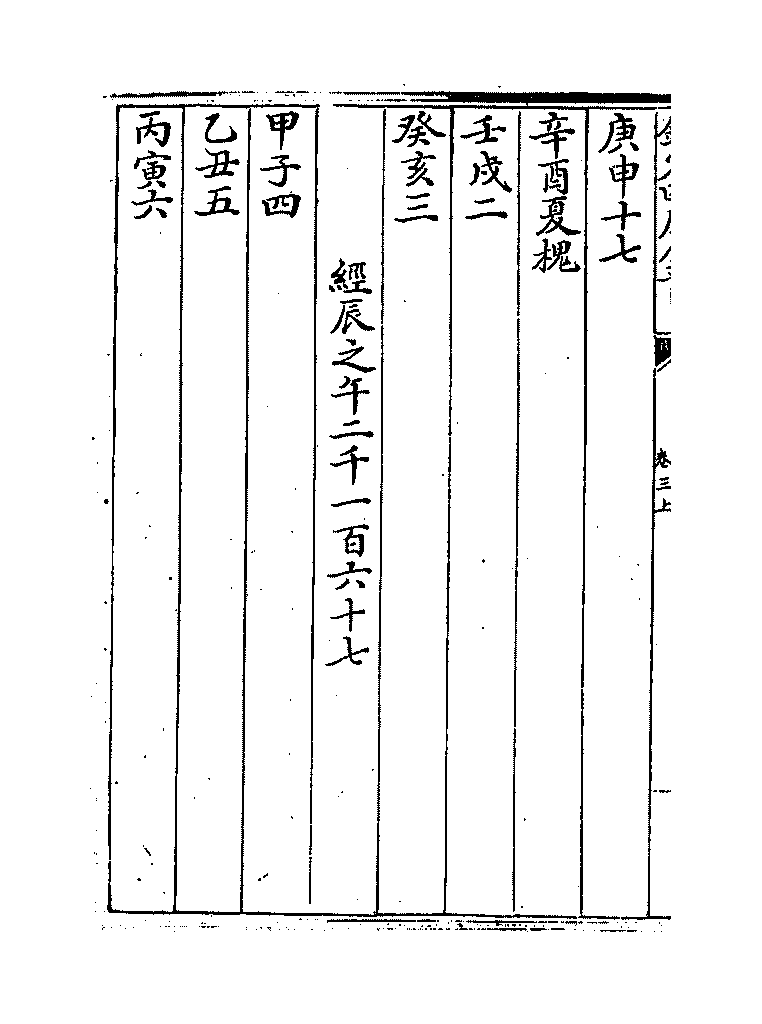 卷三上
庚申十七
辛酉夏槐
壬戌二
癸亥三
經辰之午二千一百六十七
甲子四
乙丑五
丙寅六